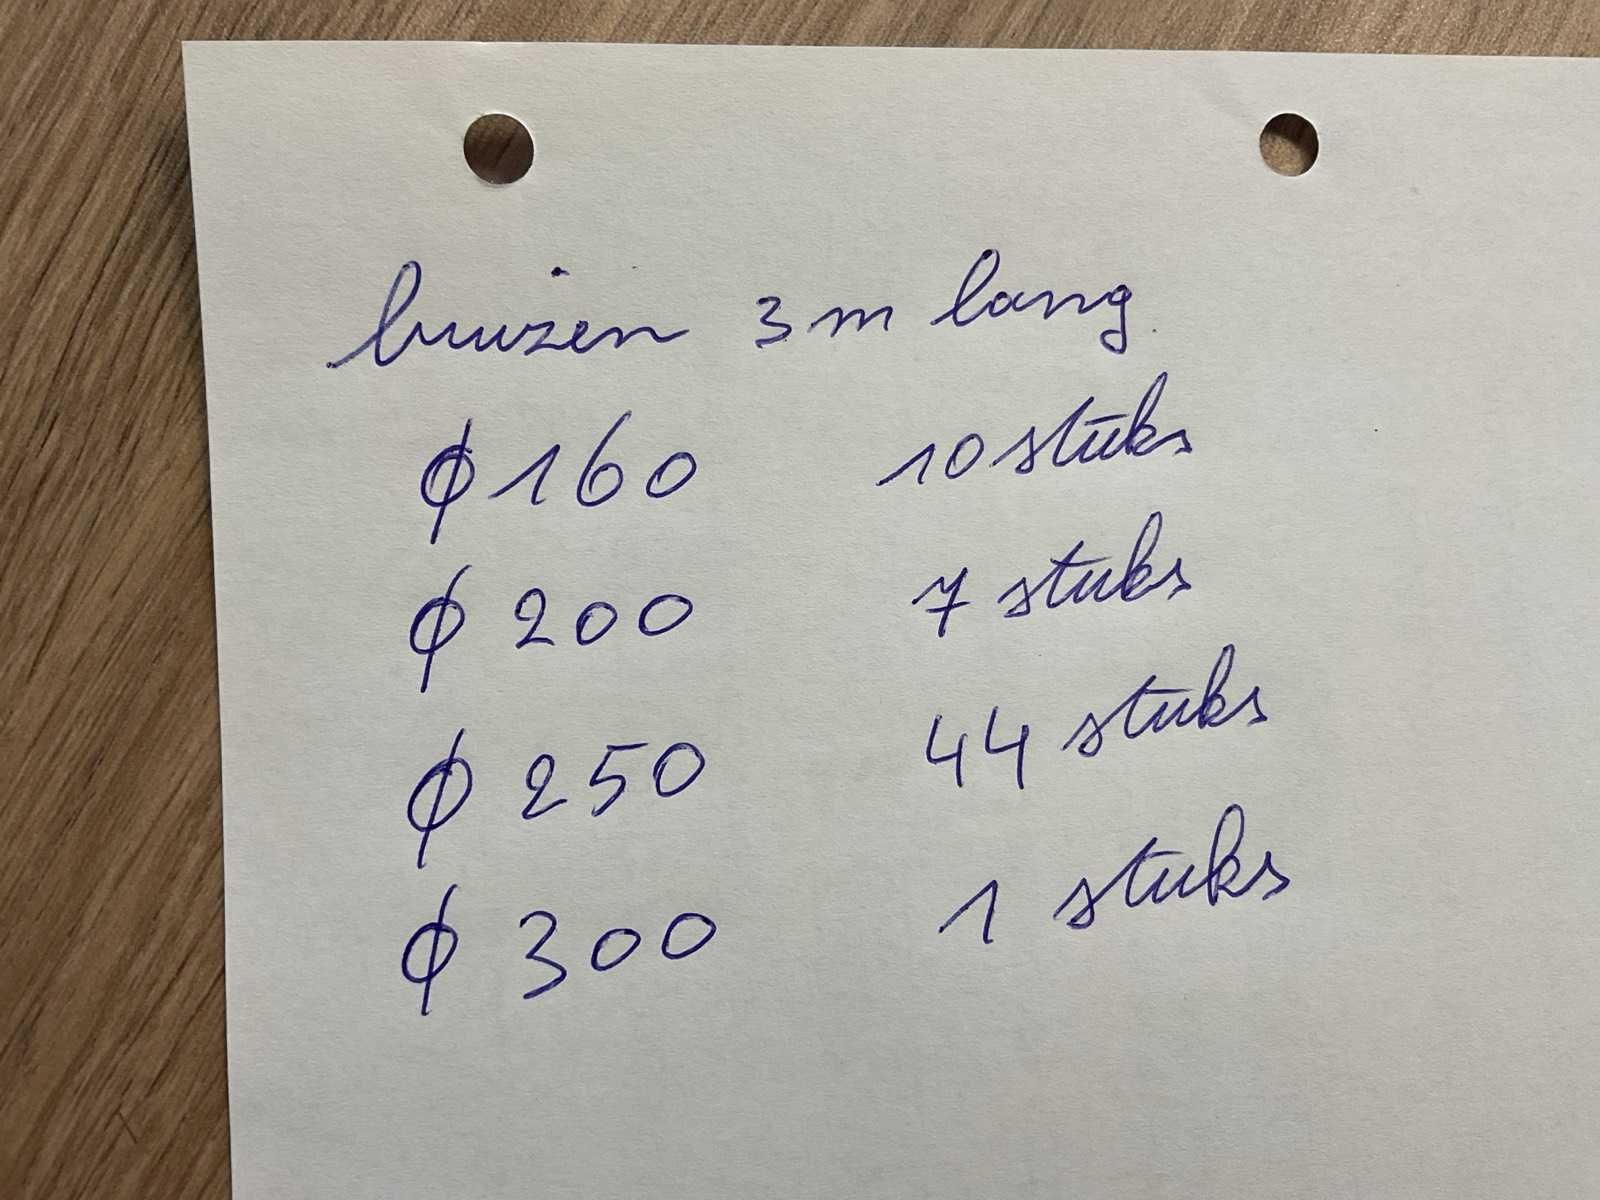 buizen 3m lang
ϕ 160 10 stuks
ϕ 200 7 stuks
ϕ 250 44 stuks
ϕ 300 1 stuks